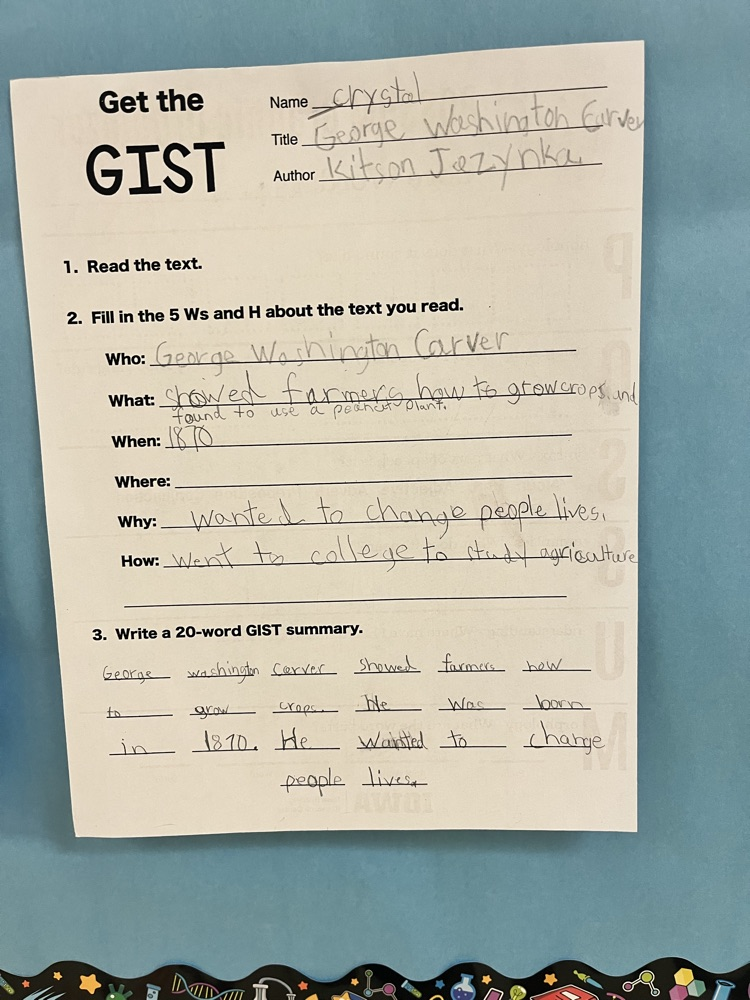 Get the
GIST
Name Crystal
Title George Washington Carver
Author Kitson Jazynka
1. Read the text.
2. Fill in the 5 Ws and H about the text you read.
Who: George Washington Carver
What: showed farmers how to grow crops and
found to use a peanut plant.
When: 1870
Where:
Why: Wanted to change people lives.
How: Went to college to study agriculture
3. Write a 20-word GIST summary.
George washington Carver showed farmers how
to grow crops. He was born
in 1870. He wainted to change
people lives.